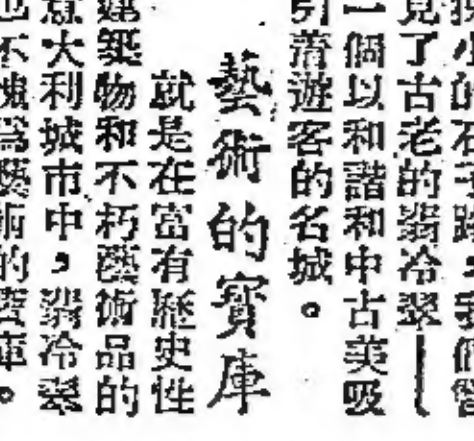 小的石子路，我們
見了古老的翡冷翠—
一個以和諧和中古美吸
引着遊客的名城。
藝術的寶庫
就是在富有歷史性
建築物和不朽藝術品的
意大利城市中，翡冷翠
也不愧爲藝術的寶庫。